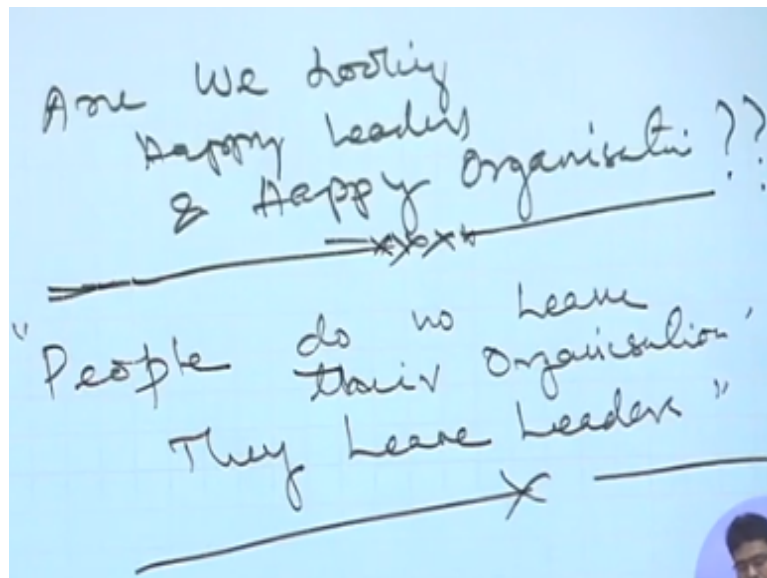 Are We Looking
Happy Leaders
& Happy Organisati ??
"People do no Leave
their Organisation'
They Leave Leaders"